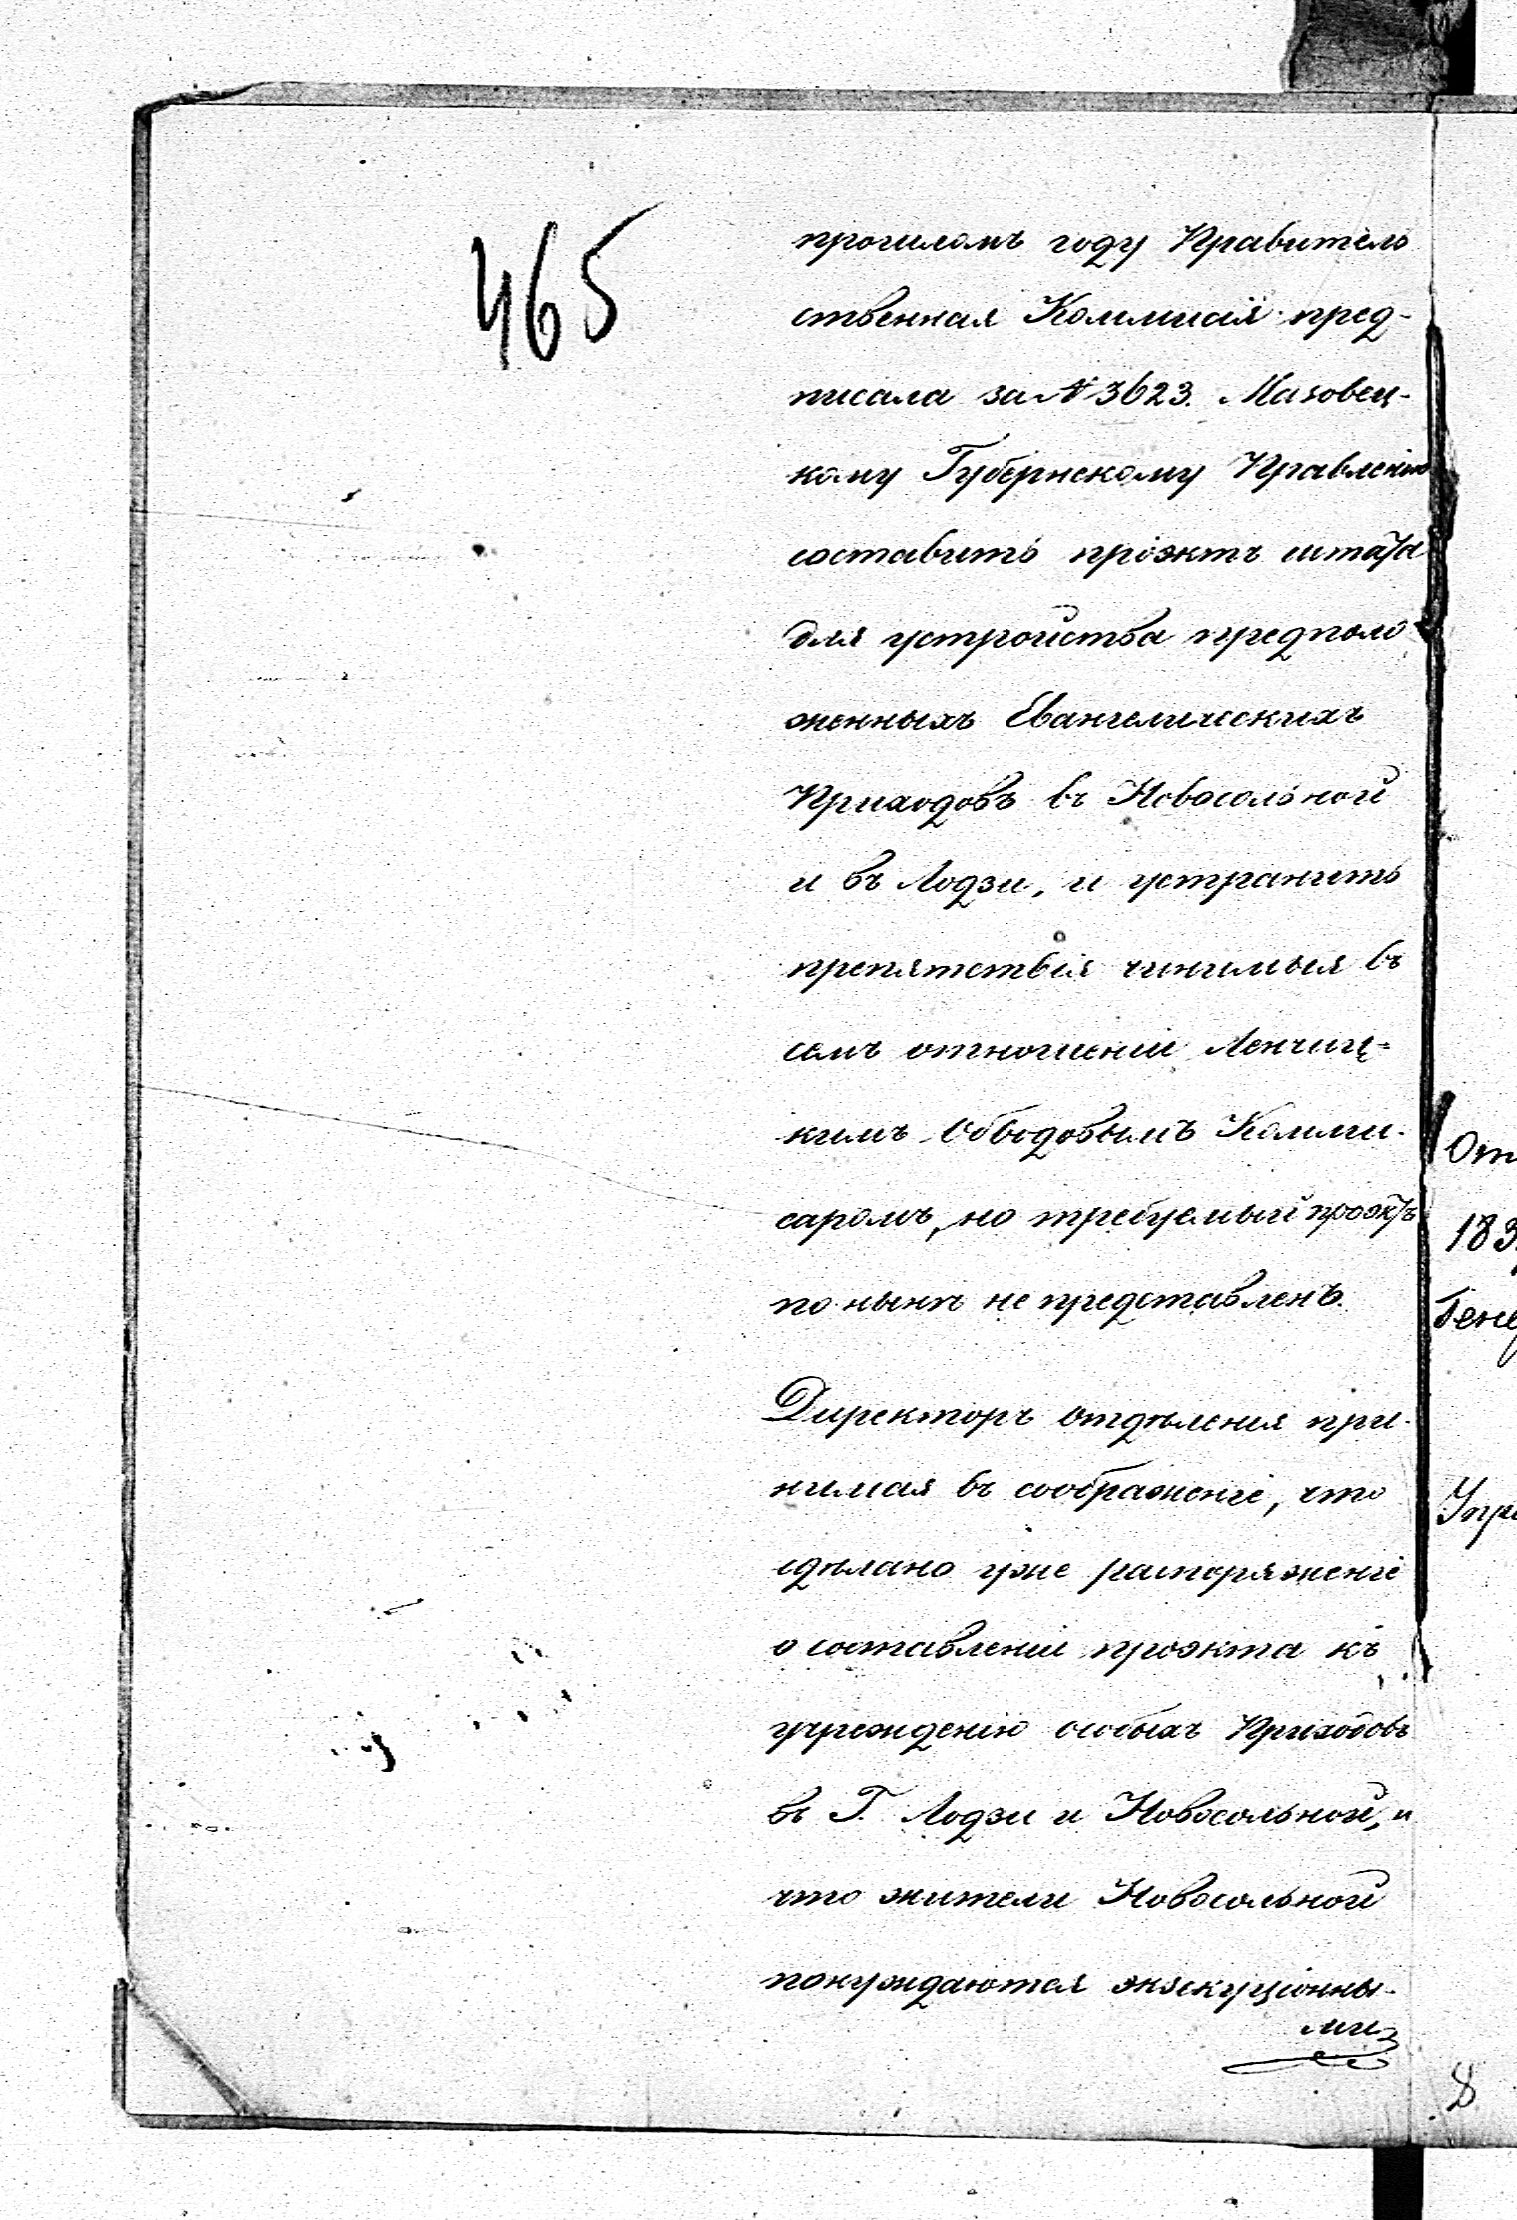 465
прошломъ году Правитель
ственная Коммисія пред-
писала за № 3623. Мазовец-
кому Губернскому Правленію
составить проэктъ штата
для устройства предполо
женныхъ Евангелическихъ
Приходовъ въ Новосольной
и въ Лодзи, и устранить
препятствія чинимыя въ
семъ отношеніи Ленчиц=
кимъ Обводовымъ Комми-
саромъ, но требуемый проэктъ
по нынѣ не представленъ.
Директоръ отдѣленія при-
нимая въ соображеніе, что
сдѣлано уже распоряженіе
о составленіи проэкта къ
учрежденію особыхъ Приходовъ
въ Г. Лодзи и Новосольной, и
что жители Новосольной
понуждаются экзекуціонны-
ми
От
183
Гене
Упра
8